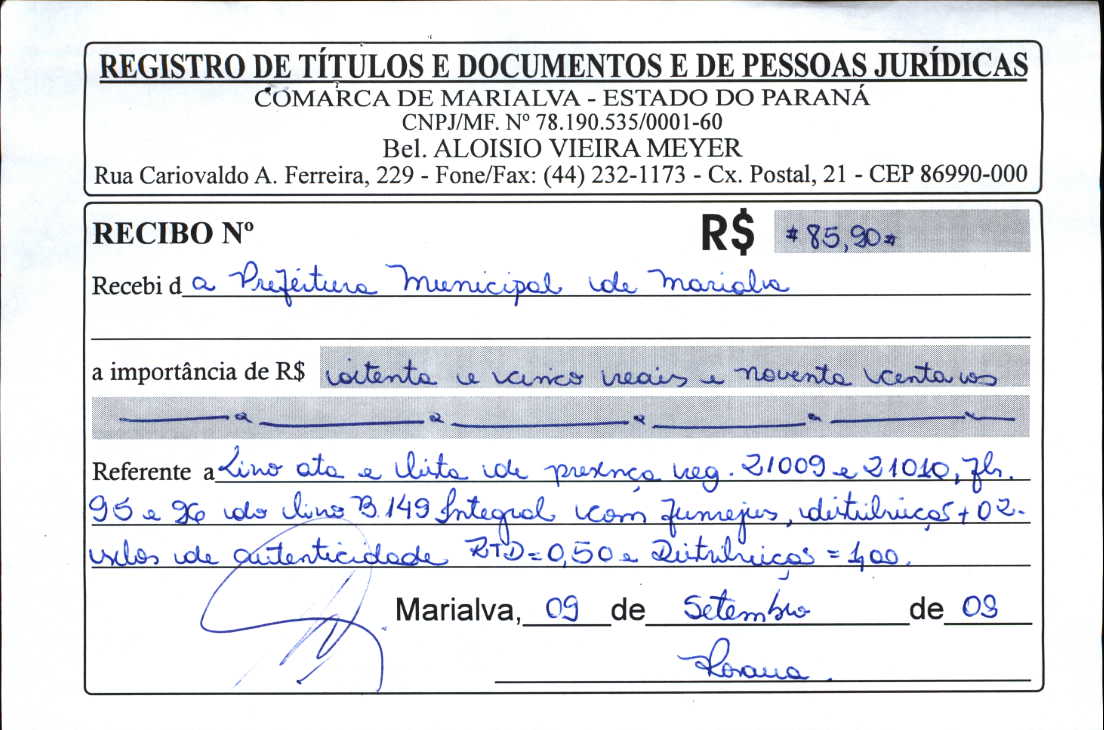 REGISTRO DE TÍTULOS E DOCUMENTOS E DE PESSOAS JURÍDICAS
COMARCA DE MARIALVA - ESTADO DO PARANÁ
CNPJ/MF. Nº 78.190.535/0001-60
Bel. ALOISIO VIEIRA MEYER
Rua Cariovaldo A. Ferreira, 229 - Fone/Fax: (44) 232-1173 - Cx. Postal, 21 - CEP 86990-000
RECIBO Nº R$ #85,90#
Recebi d a Prefeitura Municipal de Marialva
a importância de R$ oitenta e cinco reais e noventa centavos
Referente a Livro ata e lista de presença reg. 21009 e 21010, fls.
95 e 96 do livro B.149 Integral com funrejus, distribuição + 02
selos de autenticidade RTD = 0,50 e Distribuição = 1,00.
Marialva, 09 de Setembro de 03